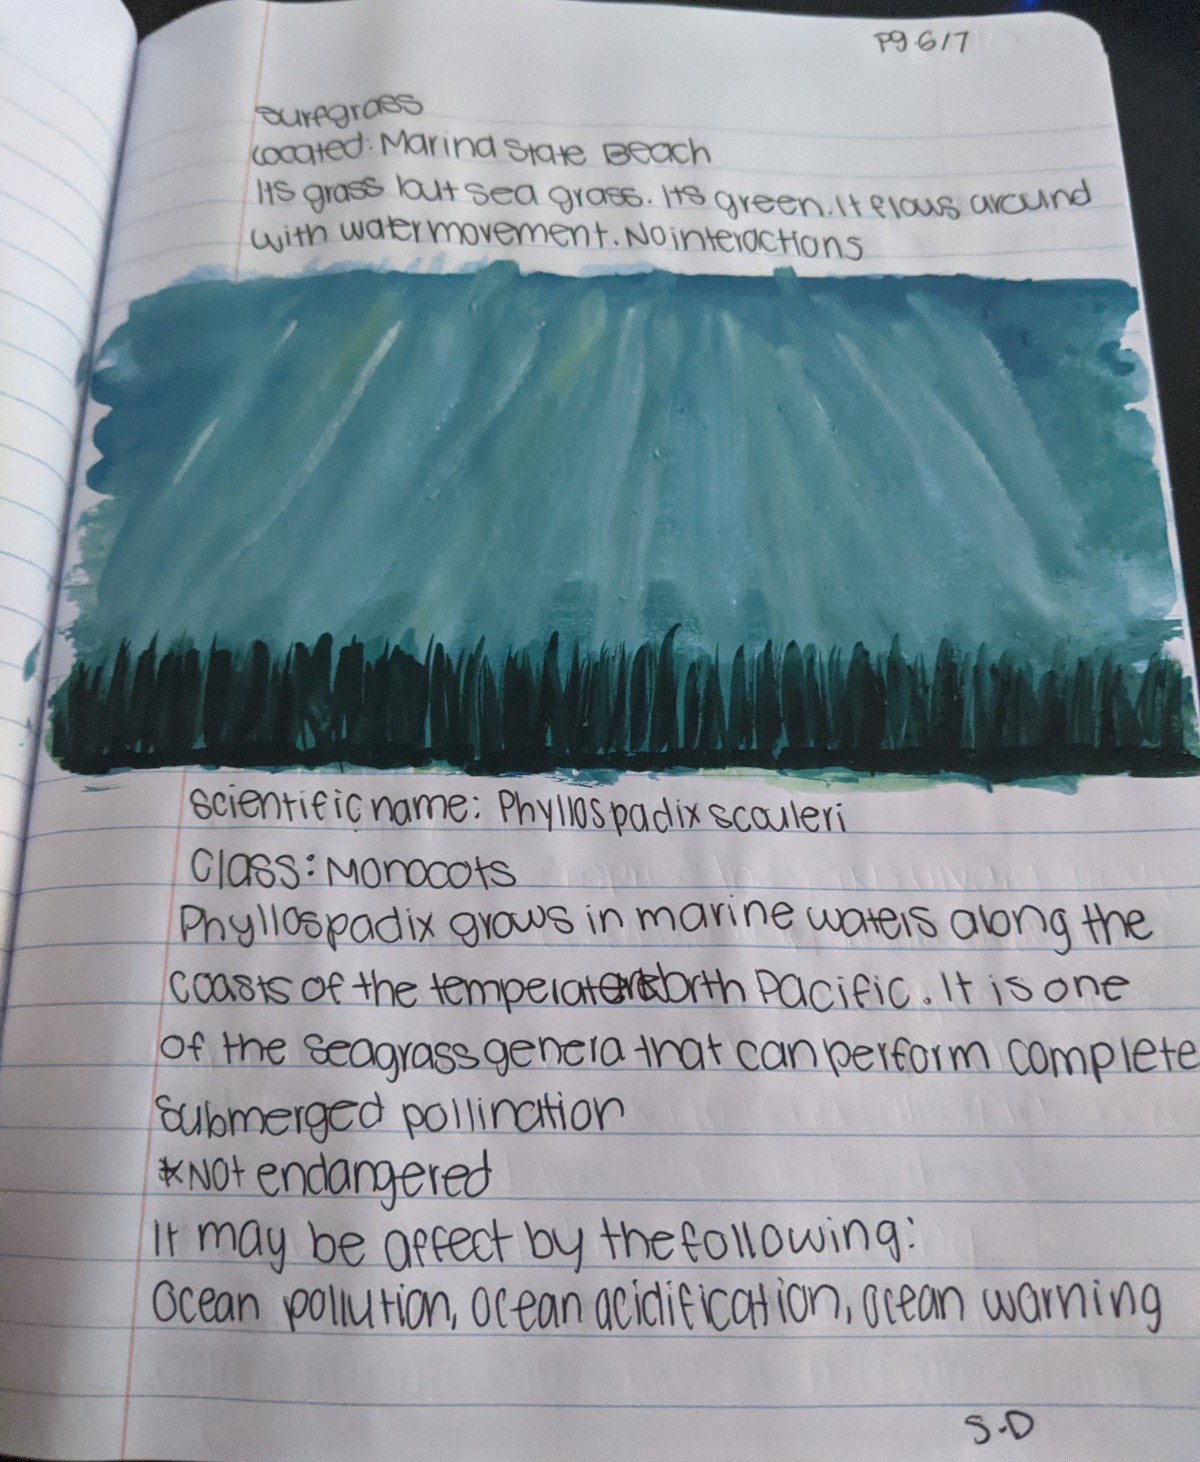 Pg. 6/7
Surfgrass
Located: Marina State Beach
Its grass but sea grass. Its green. It flows around
with water movement. No interactions
Scientific name: Phyllospadix scouleri
Class: Monocots
Phyllospadix grows in marine waters along the
coasts of the temperate North Pacific. It is one
of the seagrass genera that can perform complete
submerged pollination
*Not endangered
It may be affect by the following:
Ocean pollution, ocean acidification, ocean warning
S.D